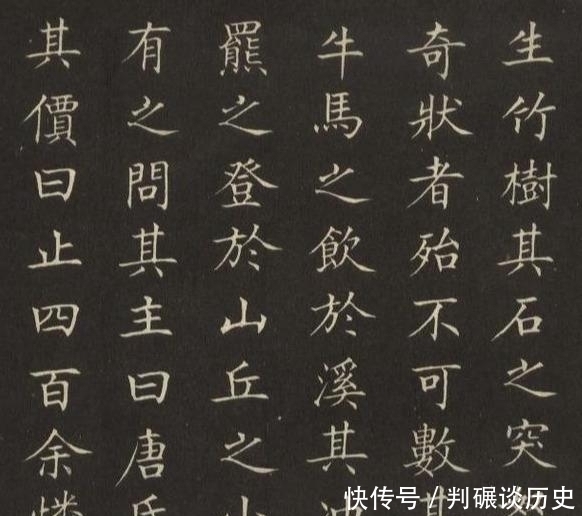 生竹樹其石之突
奇狀者殆不可數
牛馬之飲於溪其
羆之登於山丘之
有之問其主曰唐
其價曰止四百余
快传号/判碾谈历史